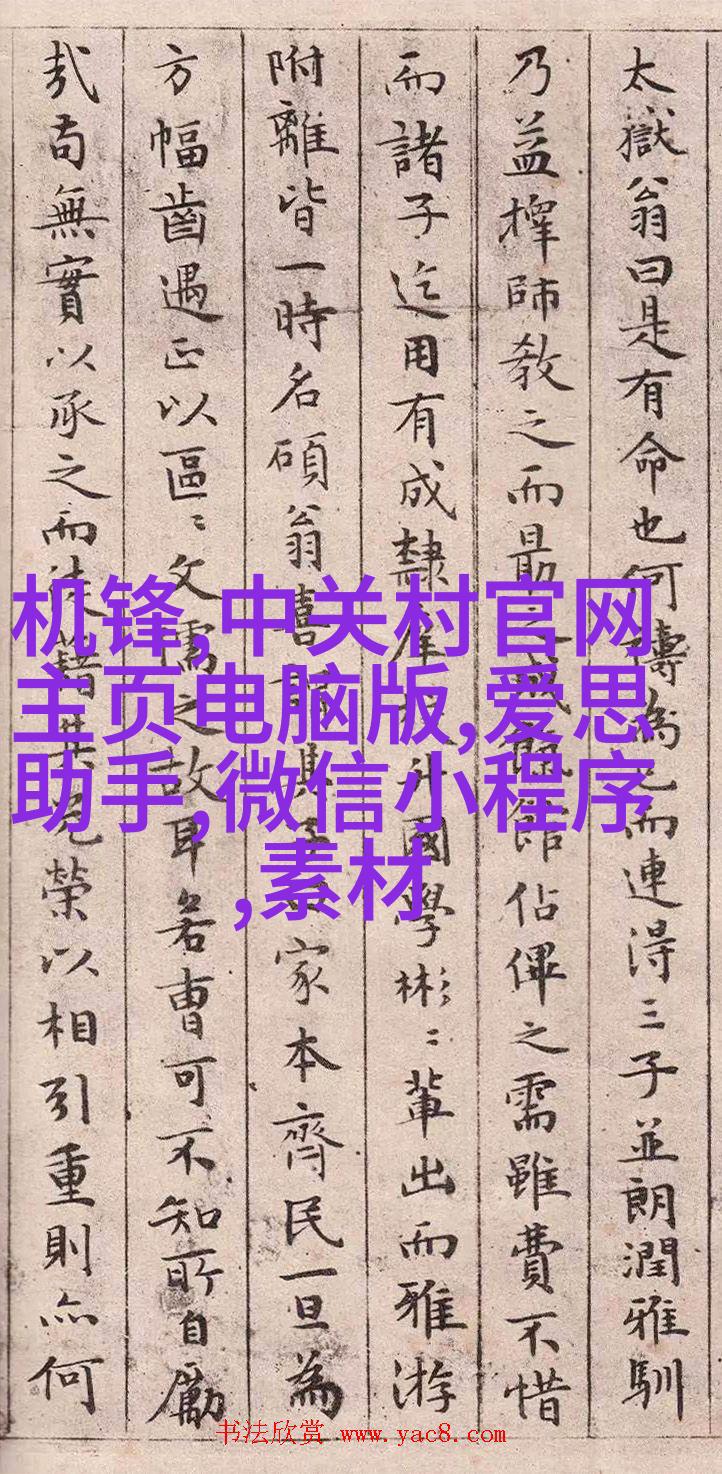 太嶽翁曰是有命也何為已而連得三子並朗潤雅馴
乃益擇師教之而最佔俾之需雖費不惜
而諸子迄用有成隸升國學彬〻輩出而雅游
附離皆一時名碩翁喜家本齊民一旦為
方幅齒遇正以區〻文儒之故耳若曹可不知所自勵
哉苟無實以承之而徒藉其榮以相引重則亦何
机锋,中关村官网
主页电脑版,爱思
助手,微信小程序
,素材
书法欣赏 www.yac8.com